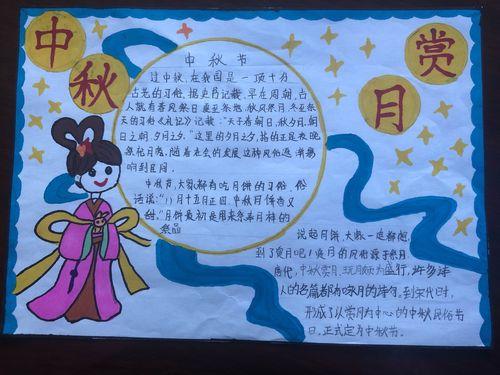 中
秋
赏
月
中秋节
过中秋,在我国是一项十分
古老的习俗,据史书记载,早在周朝,古
人就有春风祭日夏至祭地,秋风祭月,冬至祭
天的习俗《礼记》记载:"天子春朝日,秋夕月,朝
日之朝,夕月之夕。"这里的夕月之夕,指的正是夜晚
祭祀月亮,随着社会的发展这种风俗逐渐影
响到民间。
中秋节,大家都有吃月饼的习俗,俗
话说:"八月十五月正圆,中秋月饼香又
甜。"月饼最初是用来祭奉月神的
祭品
说起月饼,大家一定都想
到了赏月吧!赏月的风俗源于祭月
唐代,中秋赏月、玩月颇为盛行,许多诗
人的名篇都有咏月的诗句。到宋代时,
形成了以赏月为中心的中秋民俗节
日,正式定为中秋节。